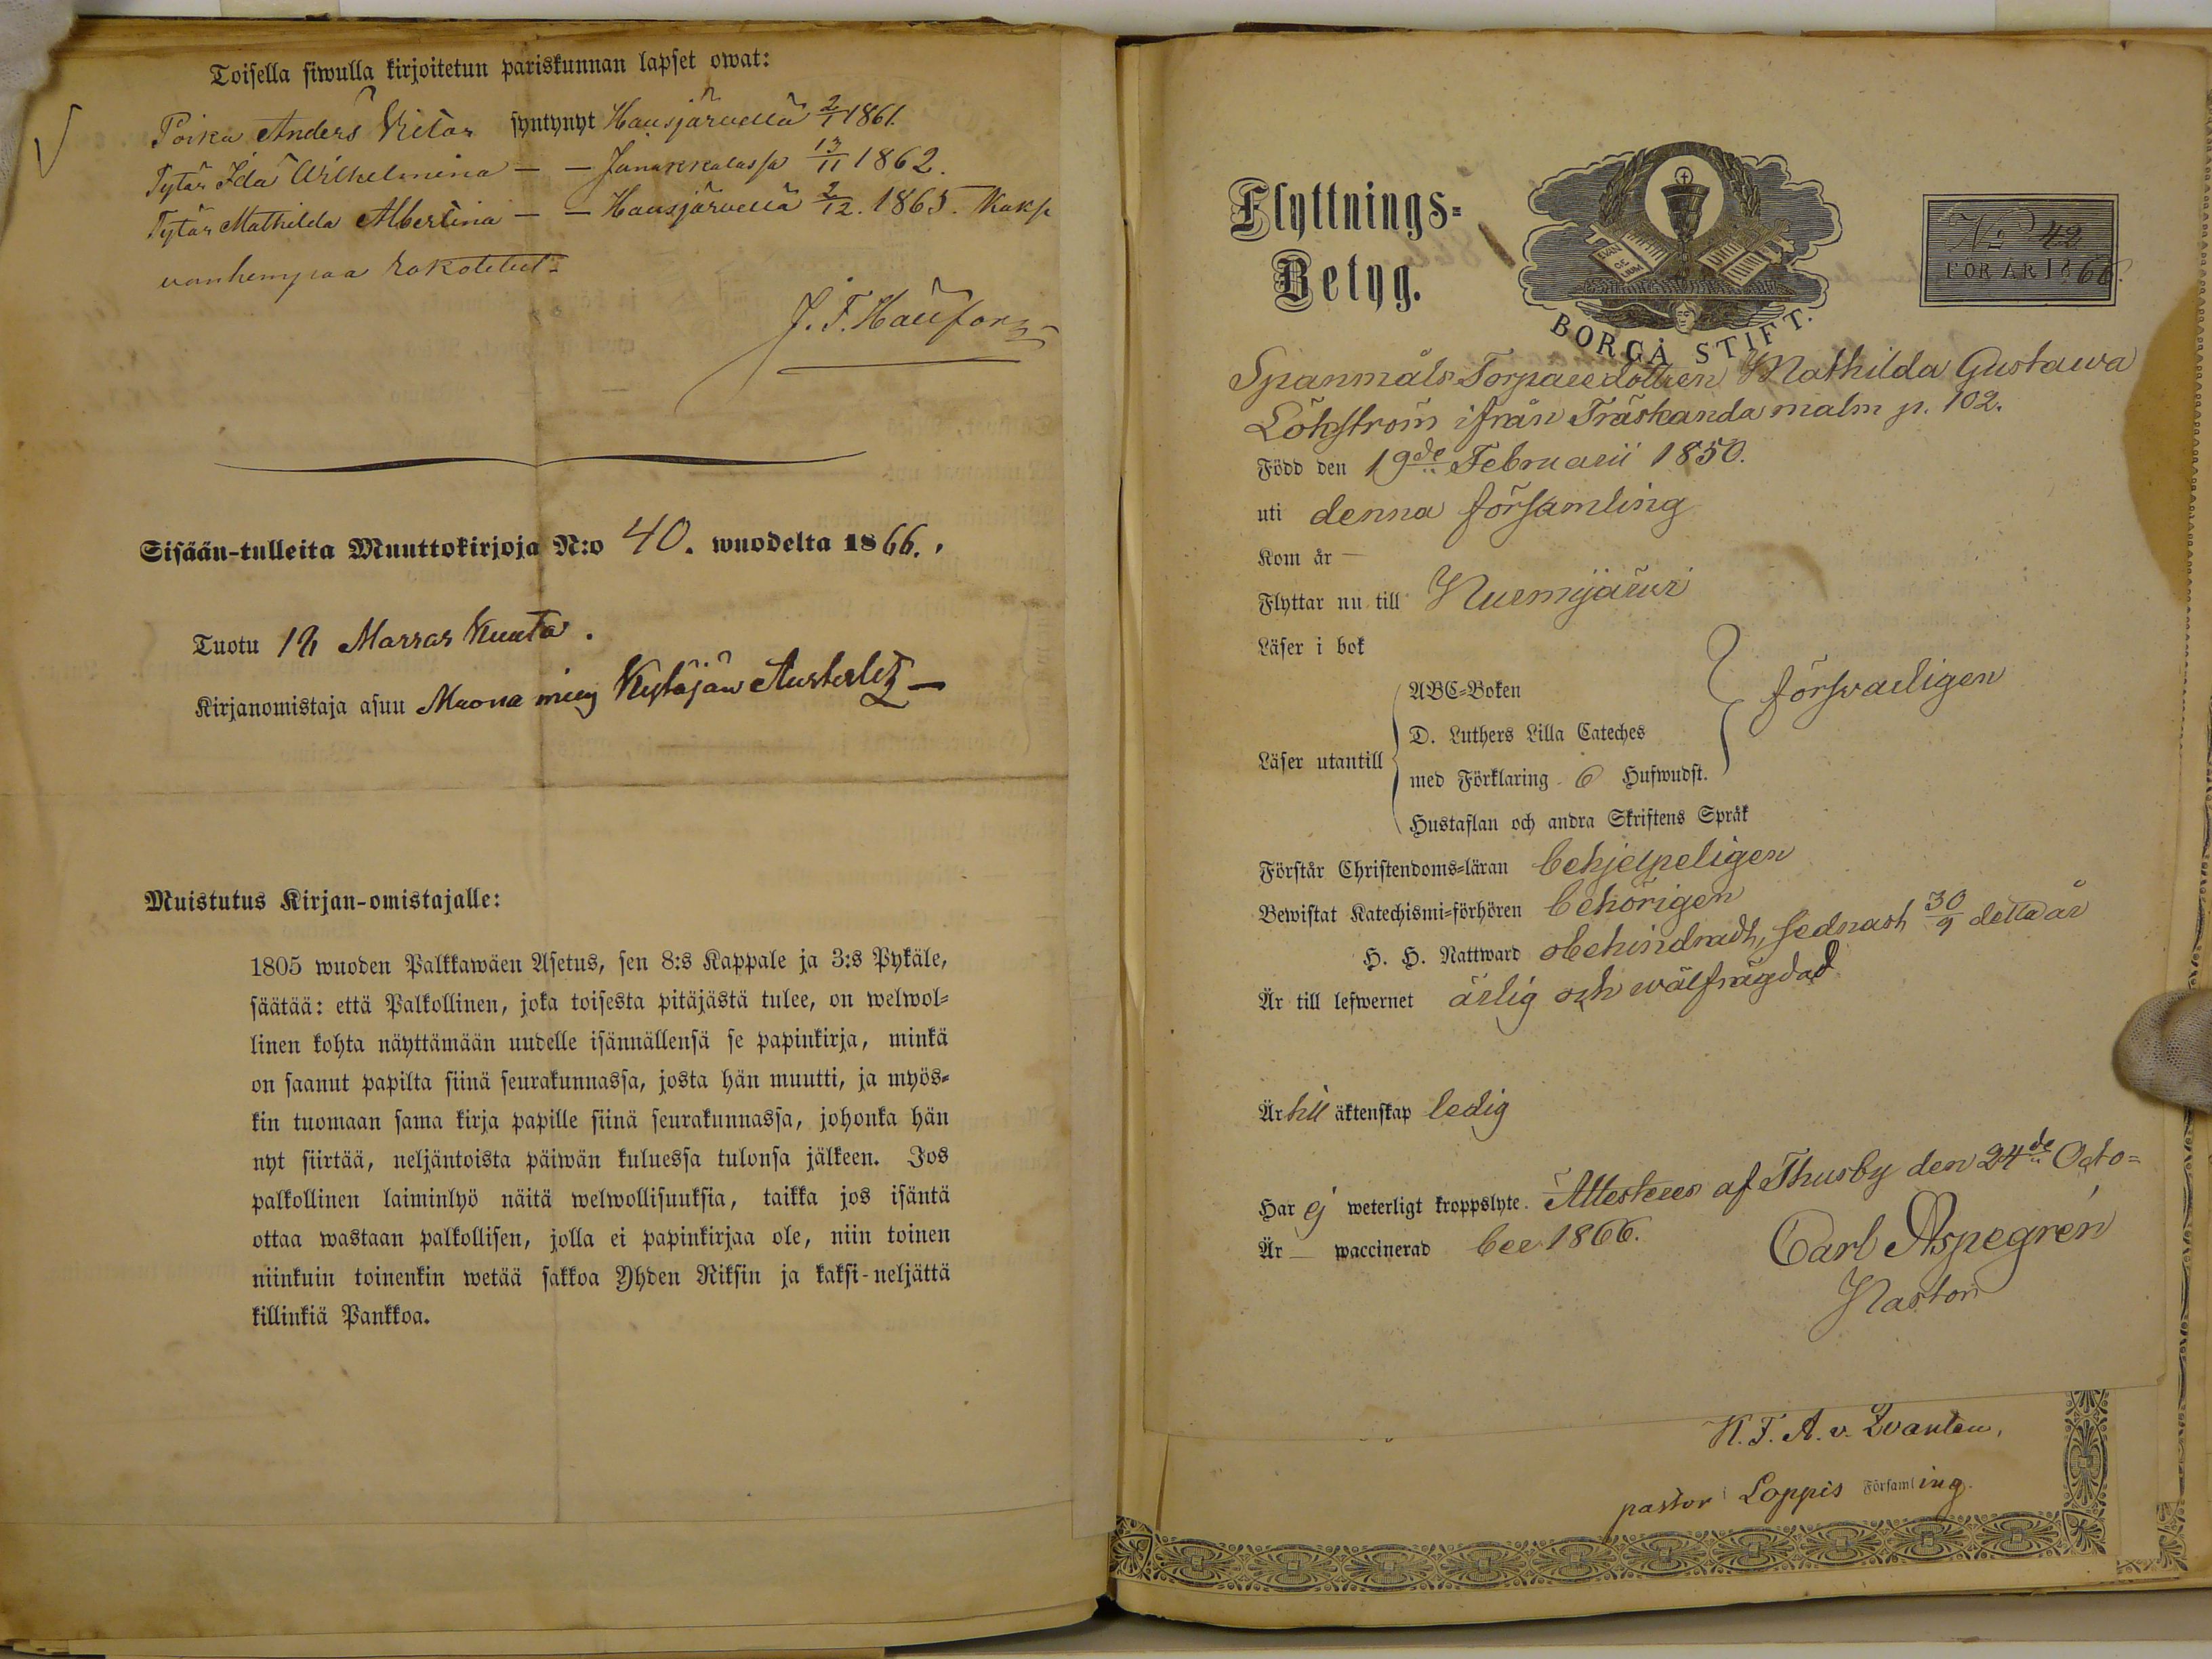 Toisella siwulla kirjoitetun pariskunnan lapset owat:
Poika Anders Viktor syntynyt Hausjärvellä 2/1 1861.
Tytär Ida Wilhelmina — — Janakkalassa 13/11 1862.
Tytär Mathilda Albertina — — Hausjärvellä 2/12. 1865. Kaksi
vanhempaa rokotetut
Sisään-tulleita Muuttokirjoja N:o 40. wuodelta 1866.
Tuotu Marras Kuuta.
Kirjanomistaja asuu Kytäjän Austerlitz —
Muistutus Kirjan-omistajalle:
1805 wuoden Palkkawäen Asetus, sen 8:s Kappale ja 3:s Pykäle,
säätää: että Palkollinen, joka toisesta pitäjästä tulee, on welwol-
linen kohta näyttämään uudelle isännällensä se papinkirja, minkä
on saanut papilta siinä seurakunnassa, josta hän muutti, ja myös-
kin tuomaan sama kirja papille siinä seurakunnassa, johonka hän
nyt siirtää, neljäntoista päiwän kuluessa tulonsa jälkeen. Jos
palkollinen laiminlyö näitä welwollisuuksia, taikka jos isäntä
ottaa wastaan palkollisen, jolla ei papinkirjaa ole, niin toinen
niinkuin toinenkin wetää sakkoa Yhden Riksin ja kaksi-neljättä
killinkiä Pankkoa.
Flyttnings-
Betyg.
EVAN
GE
LIUM
BORGÅ STIFT.
No 42
FÖR ÅR 1866.
Spanmåls Torparedottren Mathilda Gustawa
Löhström ifrån Träskandamalm p. 102.
Född den 19de Februarii 1850.
uti denna församling
Kom år —
Flyttar nu till Nurmijärvi
Läser i bok
ABC-Boken
försvarligen
D. Luthers Lilla Cateches
Läser utantill
med Förklaring 6 Hufwudst.
Hustaflan och andra Skriftens Språk
Förstår Christendoms-läran behjelpeligen
Bewistat Katechismi-förhören behörigen
H. H. Nattward obehindradt, sednast 30/9 detta år
Är till lefwernet ärlig och wälfrägdad
Är till äktenskap ledig
Har ej weterligt kroppslyte. Attesteres af Thusby den 24de Octo-
Är — waccinerad ber 1866.
Carl Aspegrén
Pastor
K. F. A. v. Zvanten,
pastor i Loppis Församling.